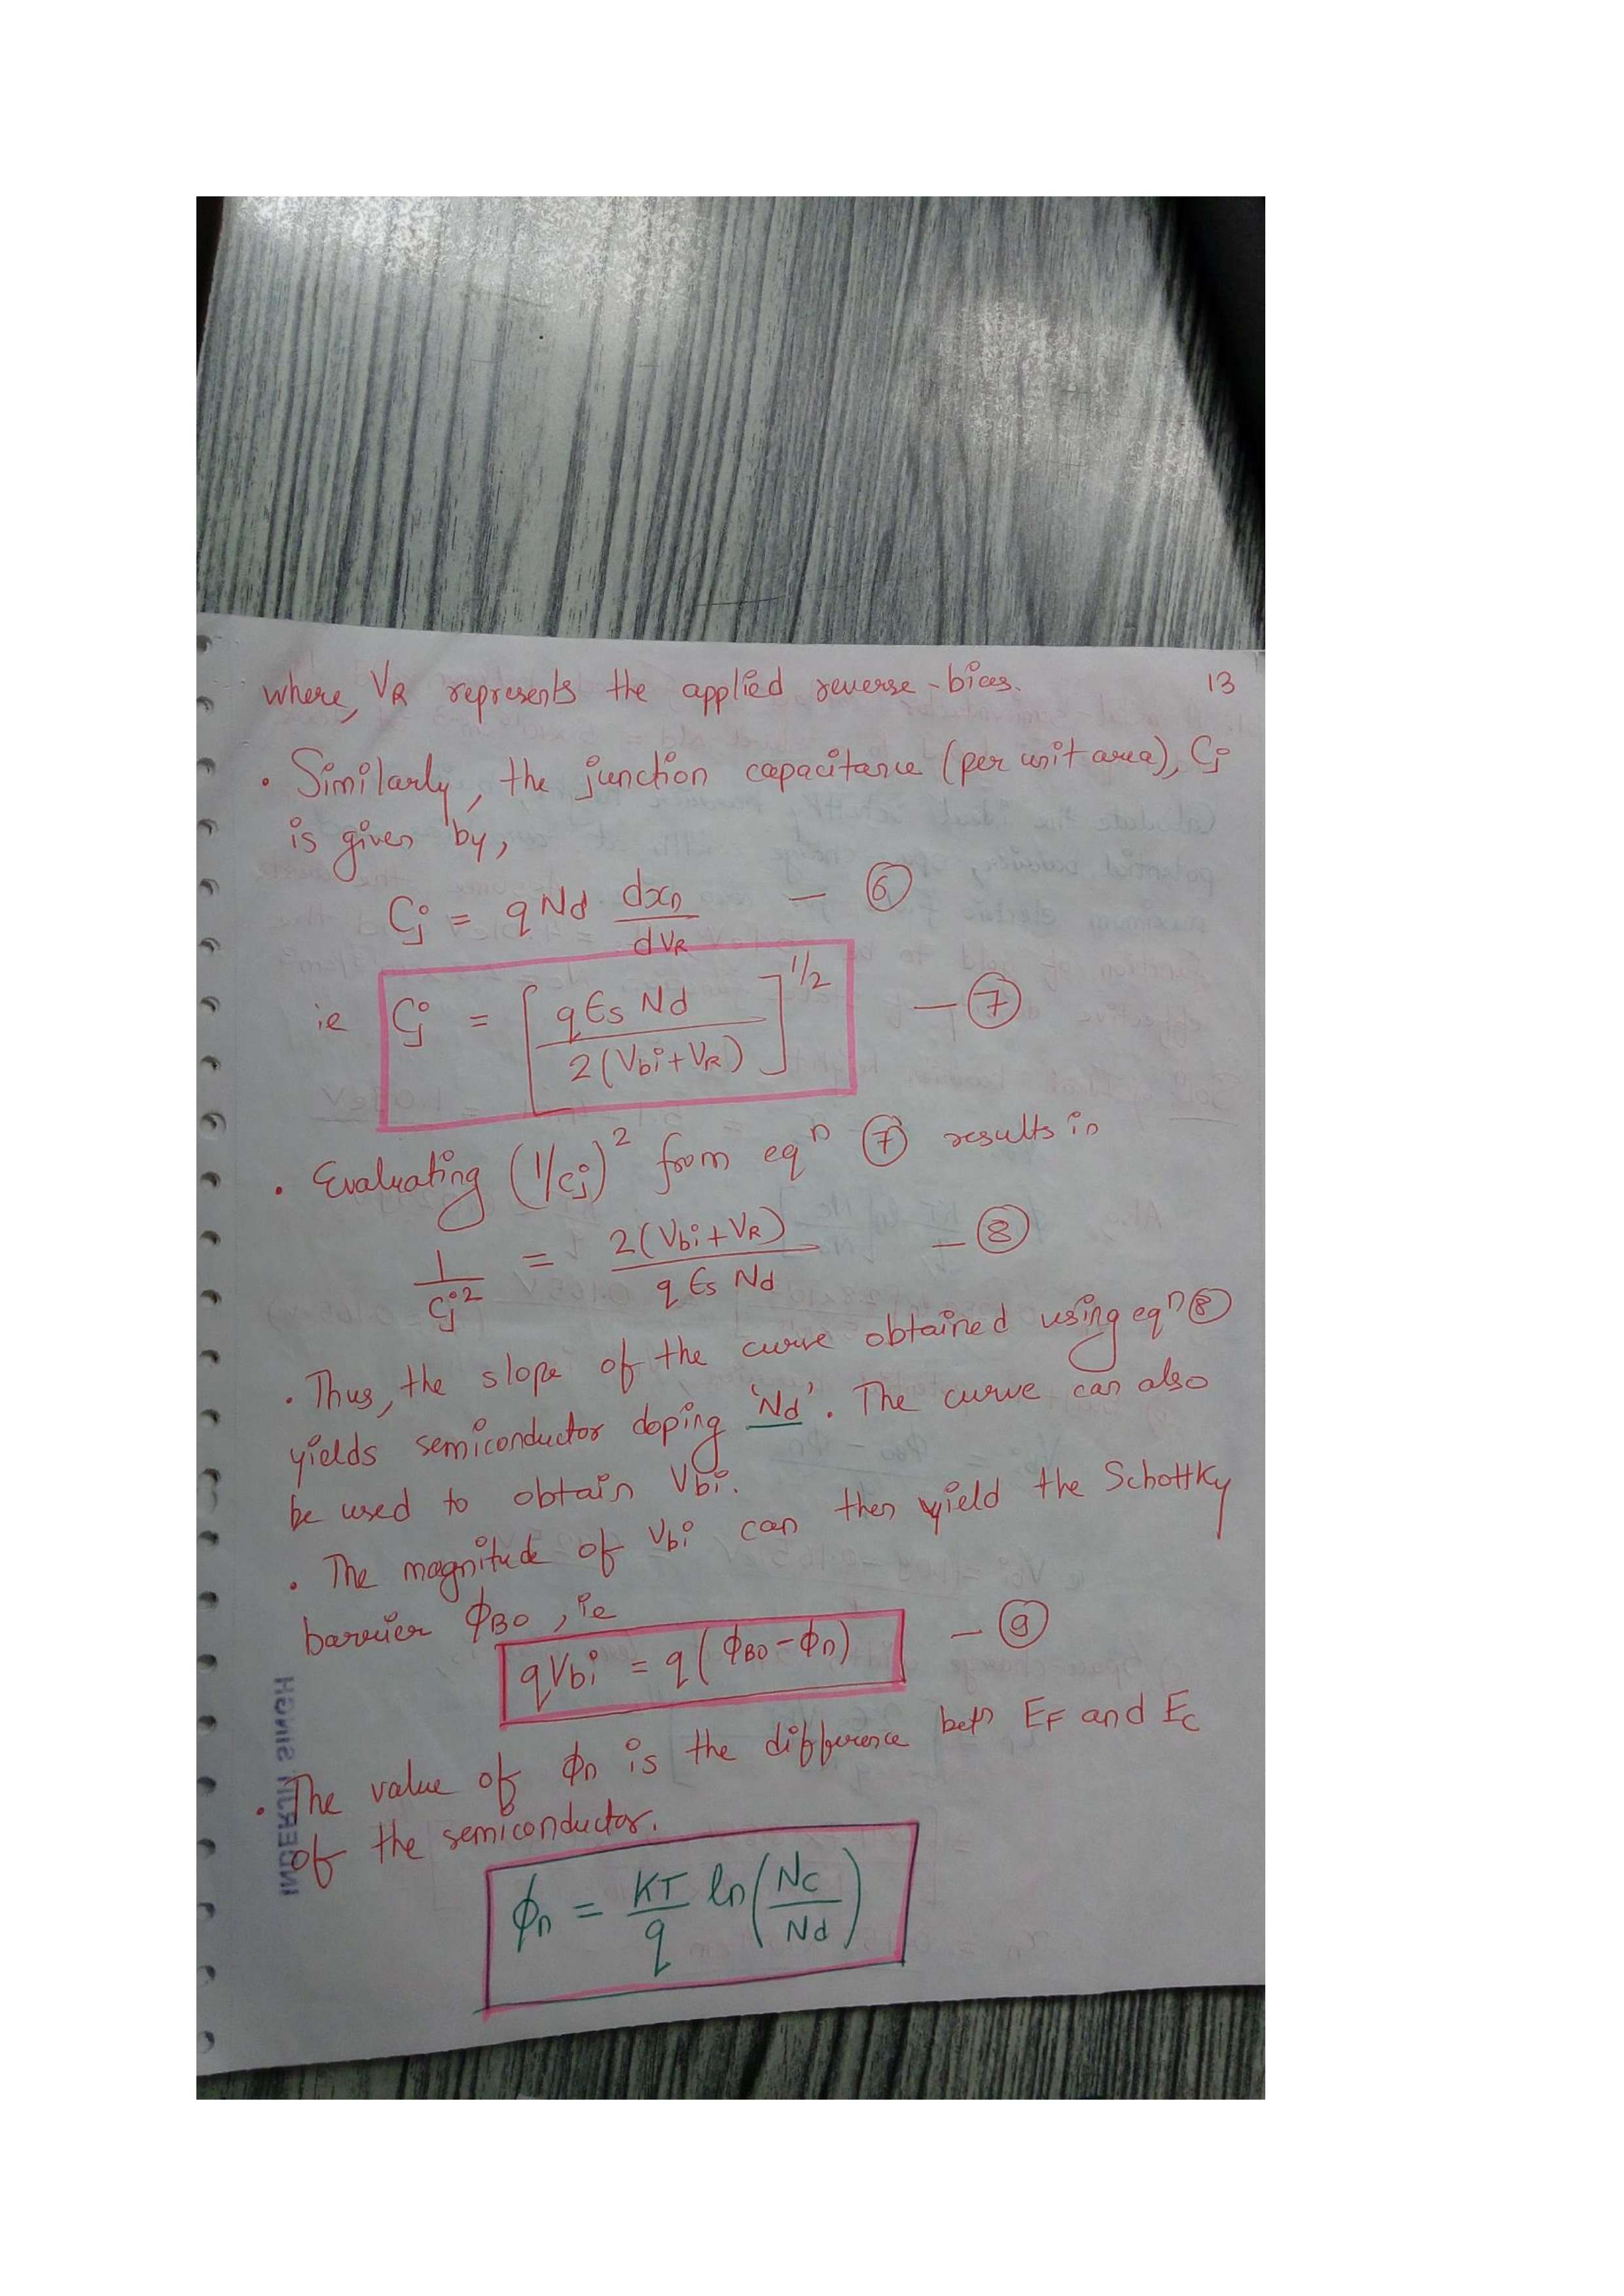 where, VR represents the applied reverse-bias. 13
• Similarly, the junction capacitance (per unit area), Cj
is given by,
Cj = q Nd dxn/dVR — ⑥
ie Cj = [q ϵs Nd / 2(Vbi+VR)]^1/2 — ⑦
• Evaluating (1/Cj)² from eqⁿ ⑦ results in
1/Cj² = 2(Vbi+VR) / q ϵs Nd — ⑧
• Thus, the slope of the curve obtained using eqⁿ ⑧
yields semiconductor doping 'Nd'. The curve can also
be used to obtain Vbi.
• The magnitude of Vbi can then yield the Schottky
barrier ϕBO, ie
qVbi = q(ϕBO - ϕn) — ⑨
• The value of ϕn is the difference betⁿ EF and EC
of the semiconductor.
ϕn = KT/q ln(NC/Nd)
INDERJIT SINGH